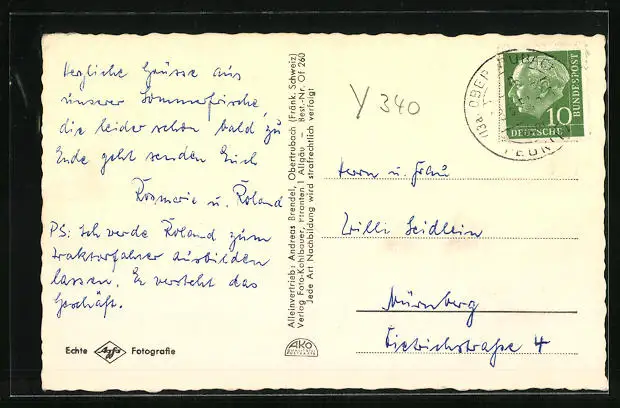 Herzliche Grüsse aus
unserer Sommerfrische,
die leider schon bald zu
Ende geht senden Euch
Rosmarie u. Roland
PS: Ich werde Roland zum
Traktorfahrer ausbilden
lassen. Er versteht das
Geschäft.
Echte Agfa Fotografie
Alleinvertrieb: Andreas Brendel, Obertrubach (Fränk. Schweiz)
Verlag Foto-Kohlbauer, Pfronten I Allgäu – Best.-Nr. Of 260
Jede Art Nachbildung wird strafrechtlich verfolgt
AKO
Y 340
(13a) OBERTRUBACH
DEUTSCHE
BUNDESPOST
10
Herrn u. Frau
Willi Seidlein
Nürnberg
Dietrichstraße 4